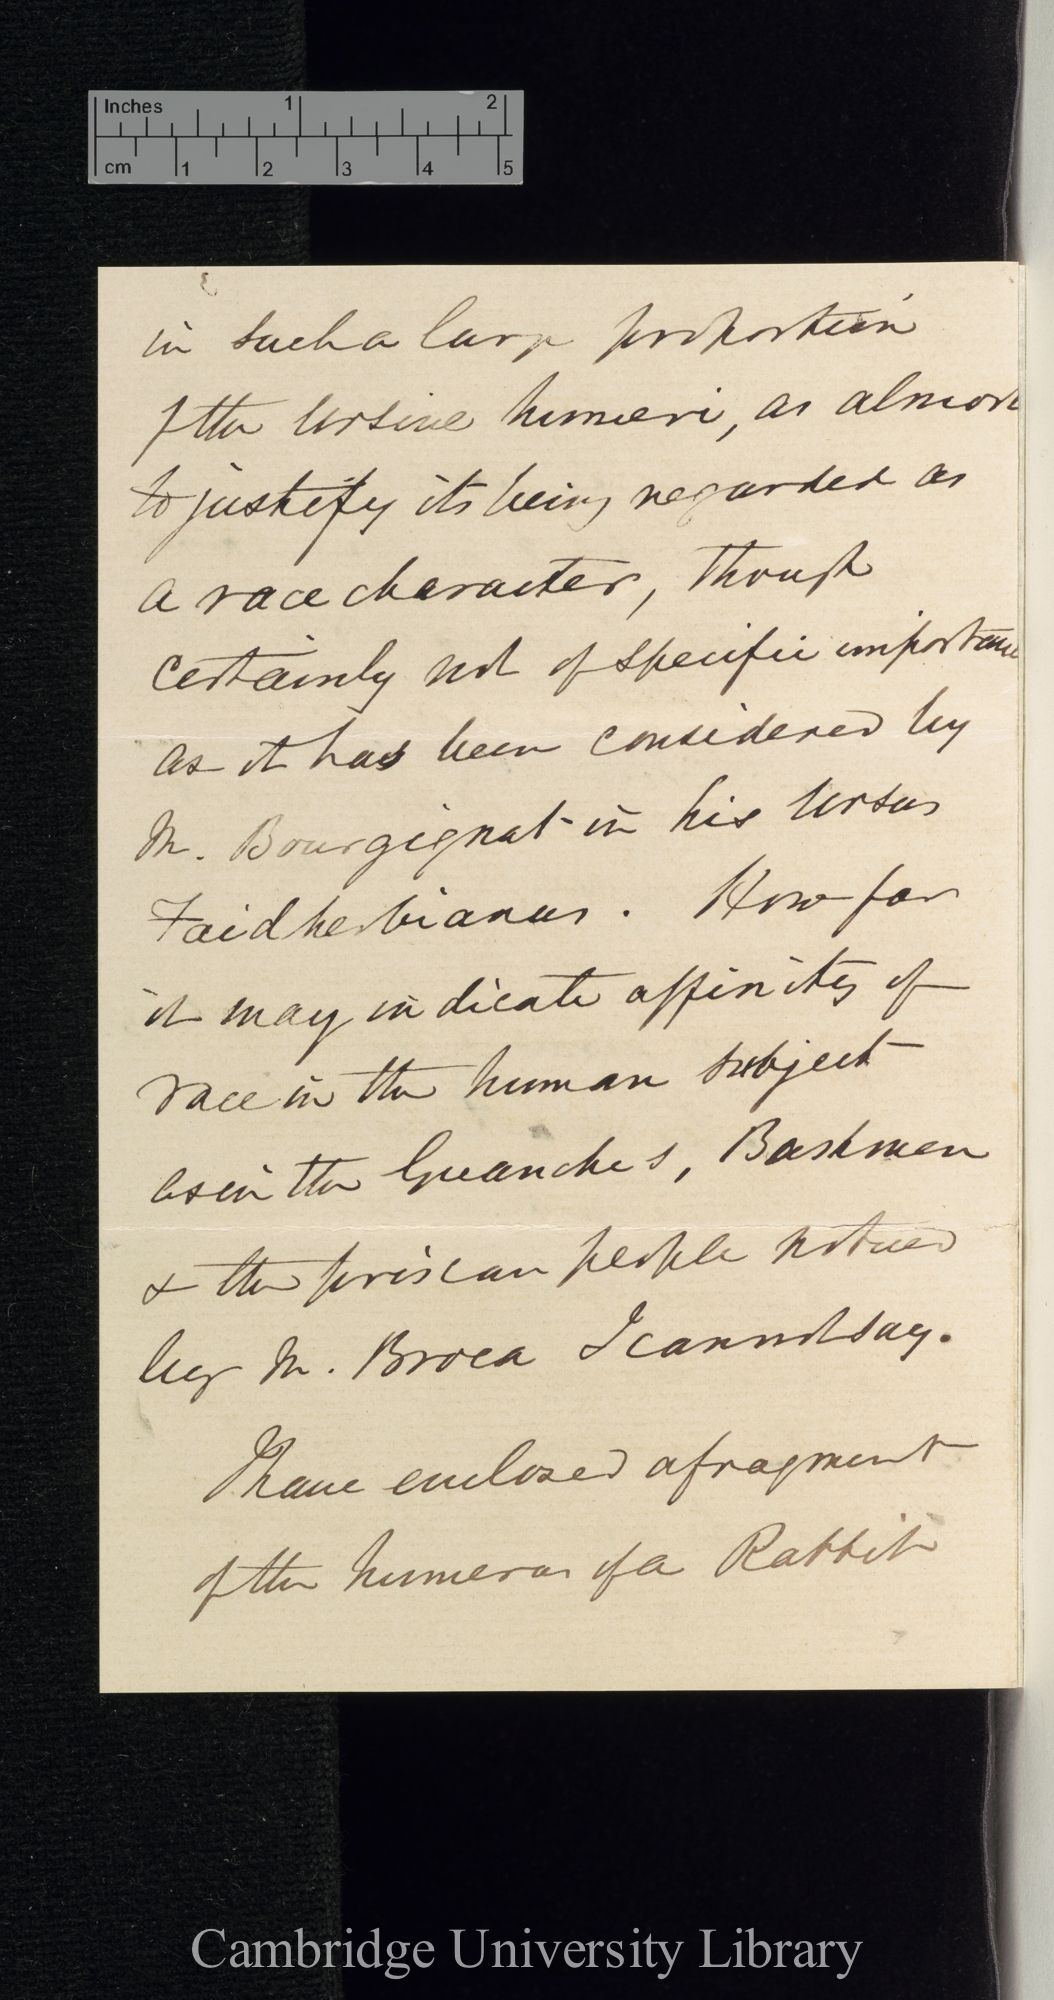 Inches 1 2
cm 1 2 3 4 5
in such a large proportion
of the Ursine humeri, as almost
to justify its being regarded as
a race character, though
certainly not of specific importance
as it has been considered by
M. Bourgignat in his Ursus
Faidherbianus. How far
it may indicate affinity of
race in the human subject
as in the Guanches, Bushmen
& the priscan people noticed
by M. Broca I cannot say.
I have enclosed a fragment
of the humerus of a Rabbit
Cambridge University Library